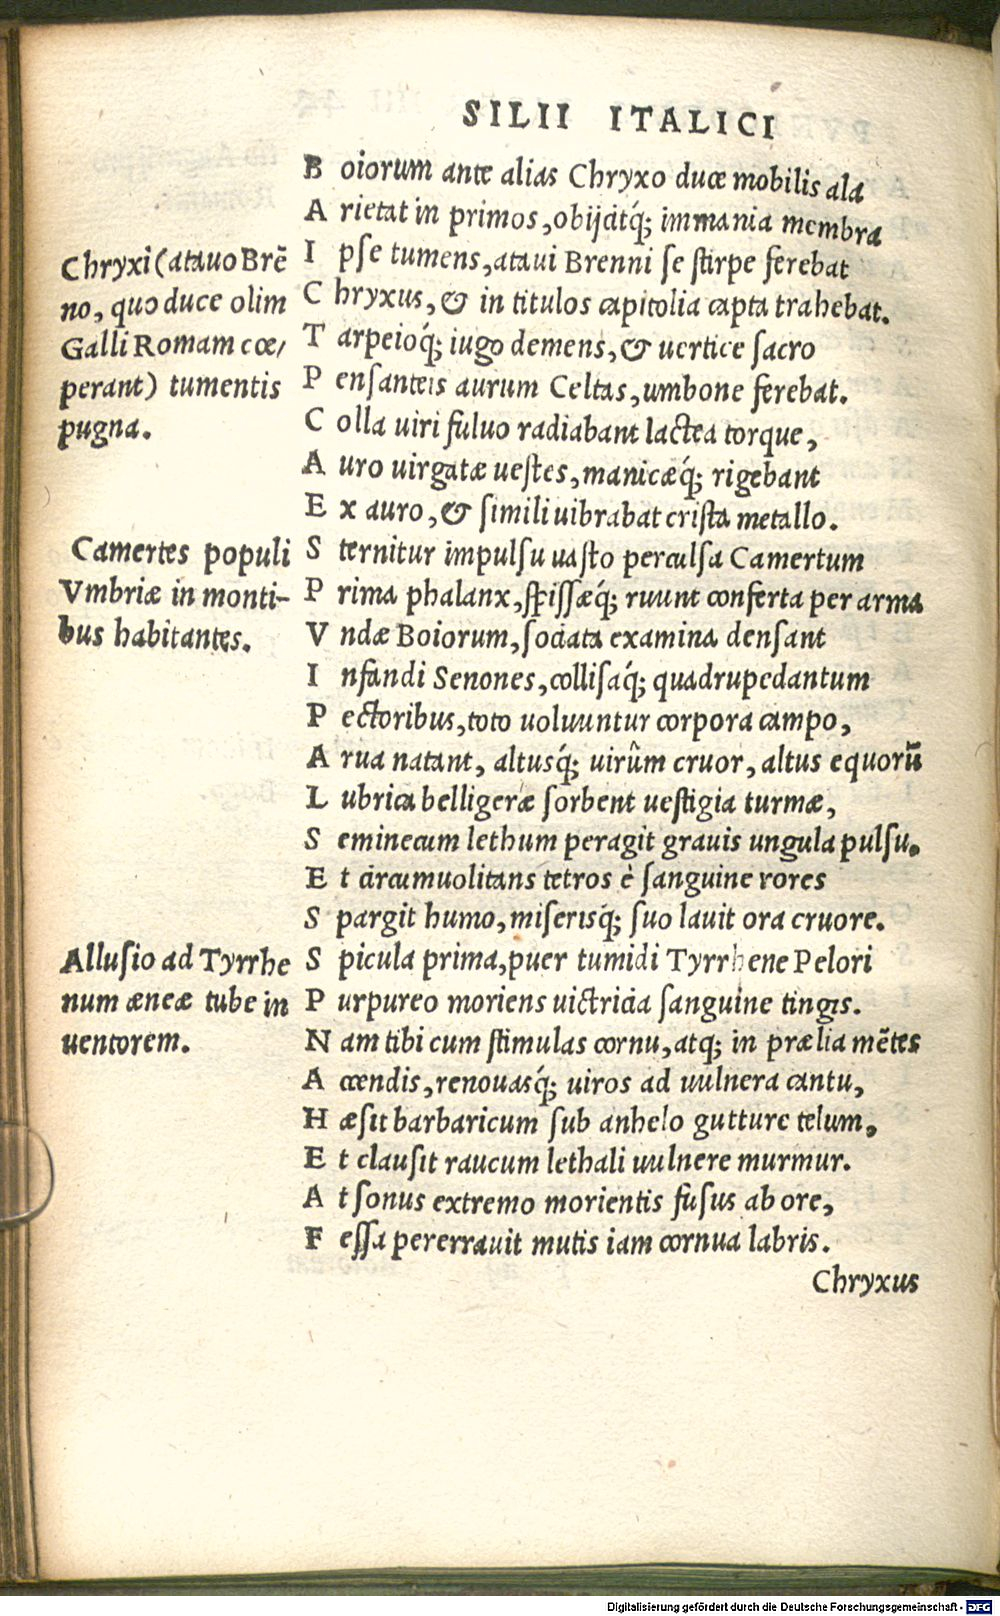 SILII ITALICI
Boiorum ante alias Chryxo duce mobilis ala
Arietat in primos, obijcitq́; immania membra
Ipse tumens, ataui Brenni se stirpe ferebat
Chryxus, & in titulos capitolia capta trahebat.
Tarpeioq́; iugo demens, & uertice sacro
Pensanteis aurum Celtas, umbone ferebat.
Colla uiri fuluo radiabant lactea torque,
Auro uirgatæ uestes, manicæq́; rigebant
Ex auro, & simili uibrabat crista metallo.
Sternitur impulsu uasto perculsa Camertum
Prima phalanx, spissæq́; ruunt conferta per arma
Vndæ Boiorum, sociata examina densant
Infandi Senones, collisaq́; quadrupedantum
Pectoribus, toto uoluuntur corpora campo,
Arua natant, altusq́; uirûm cruor, altus equorũ
Lubrica belligeræ sorbent uestigia turmæ,
Seminecum lethum peragit grauis ungula pulsu.
Et circumuolitans tetros è sanguine rores
Spargit humo, miserisq́; suo lauit ora cruore.
Spicula prima, puer tumidi Tyrrhene Pelori
Purpureo moriens uictricia sanguine tingis.
Nam tibi cum stimulas cornu, atq; in prælia mẽtes
Accendis, renouasq́; uiros ad uulnera cantu,
Hæsit barbaricum sub anhelo gutture telum,
Et clausit raucum lethali uulnere murmur.
At sonus extremo morientis fusus ab ore,
Fessa pererrauit mutis iam cornua labris.
Chryxus
Chryxi (atauo Brẽ
no, quo duce olim
Galli Romam cœ/
perant) tumentis
pugna.
Camertes populi
Vmbriæ in monti-
bus habitantes.
Allusio ad Tyrrhe
num æneæ tube in
uentorem.
Digitalisierung gefördert durch die Deutsche Forschungsgemeinschaft - DFG